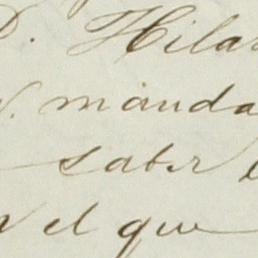 D. Hila
manda
saber
el que